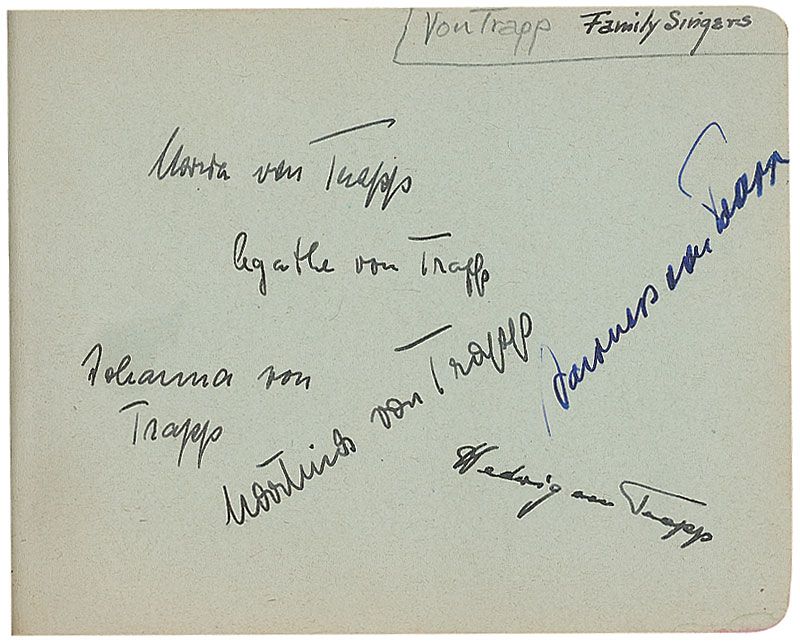 Von Trapp Family Singers
Maria von Trapp
Agathe von Trapp
Baroness von Trapp
Johanna von
Trapp
Martina von Trapp
Hedwig von Trapp